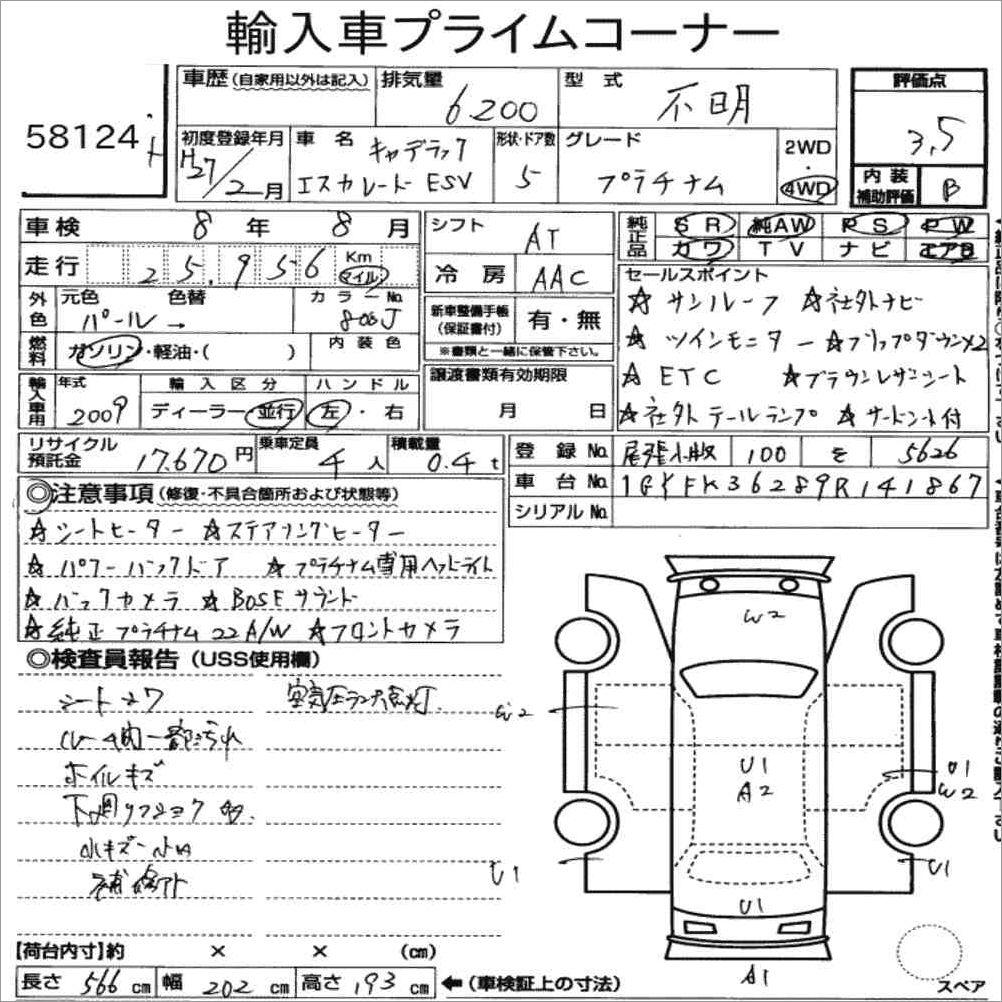 輸入車プライムコーナー
58124
車歴(自家用以外は記入)
排気量 6200
型式 不明
評価点 3.5
初度登録年月 H27/2月
車名 キャデラック エスカレードESV
形状・ドア数 5
グレード プラチナム
2WD 4WD
内装補助評価 B
車検 8年8月
シフト AT
純正品 SR 純AW PS PW
カワ TV ナビ エアB
走行 25,956 Km マイル
冷房 AAC
セールスポイント
外色 元色 色替 カラーNo.
パール→ 806J
☆サンルーフ ☆社外ナビ
新車整備手帳(保証書付) 有・無
※書類と一緒に保管下さい。
☆ツインモニター ☆フリップダウン×2
燃料 ガソリン・軽油・( ) 内装色
☆ETC ☆ブラウンレザーシート
輸入車用 年式 2009
輸入区分 ディーラー・並行
ハンドル 左・右
譲渡書類有効期限 月 日
☆社外テールランプ ☆サードシート付
リサイクル預託金 17,670円
乗車定員 4人
積載量 0.4t
登録No. 尾張小牧 100 を 5626
車台No. 1GYFK36289R141867
シリアルNo.
◎注意事項(修復・不具合箇所および状態等)
☆シートヒーター ☆ステアリングヒーター
☆パワーバックドア ☆プラチナム専用ヘッドライト
☆バックカメラ ☆BOSEサウンド
☆純正プラチナム22A/W ☆フロントカメラ
◎検査員報告(USS使用欄)
空気圧ランプ点灯
ルーム内一部汚れ
ホイルキズ
下廻りフショク
小キズ・小凹
補修跡
W2
W2
U1
A2
U1
W2
U1
U1
U1
A1
スペア
【荷台内寸】約 × × (cm)
長さ 566cm 幅 202cm 高さ 193cm ←(車検証上の寸法)